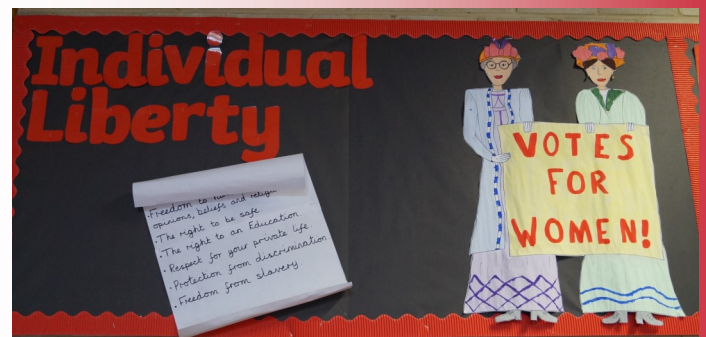 Individual
Liberty
VOTES
FOR
WOMEN!
·Freedom to
opinions, beliefs and
·The right to be safe.
·The right to an Education.
·Respect for your private life.
·Protection from discrimination
·Freedom from slavery.